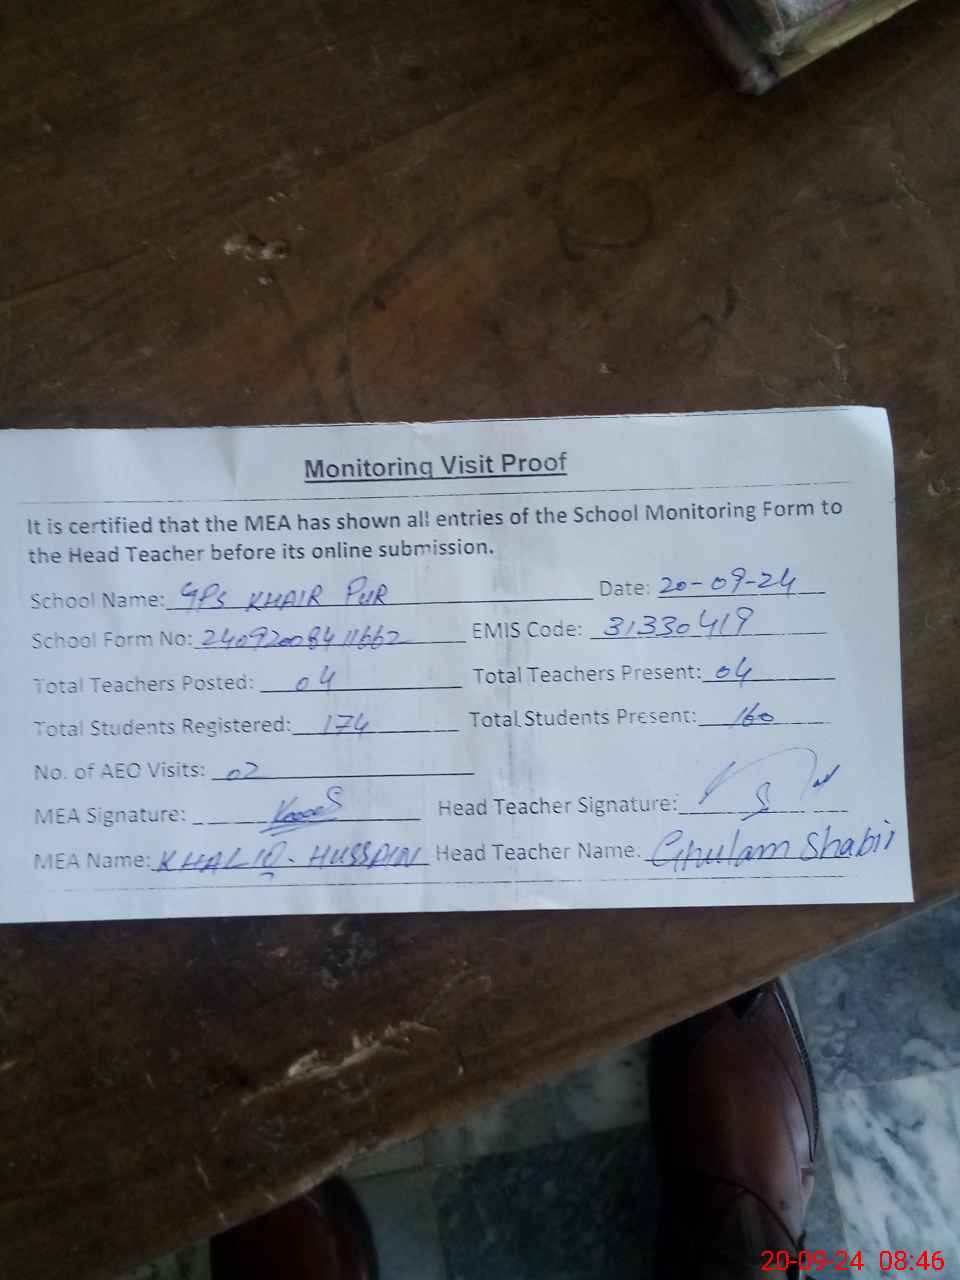 Monitoring Visit Proof
It is certified that the MEA has shown all entries of the School Monitoring Form to
the Head Teacher before its online submission.
School Name: GPS KHAIR PUR Date: 20-09-24
School Form No: 2409200841662 EMIS Code: 31330419
Total Teachers Posted: 04 Total Teachers Present: 04
Total Students Registered: 174 Total Students Present: 160
No. of AEO Visits: 02
MEA Signature: Head Teacher Signature:
MEA Name: KHALIQ. HUSSAIN Head Teacher Name: Ghulam Shabir
20-09-24 08:46